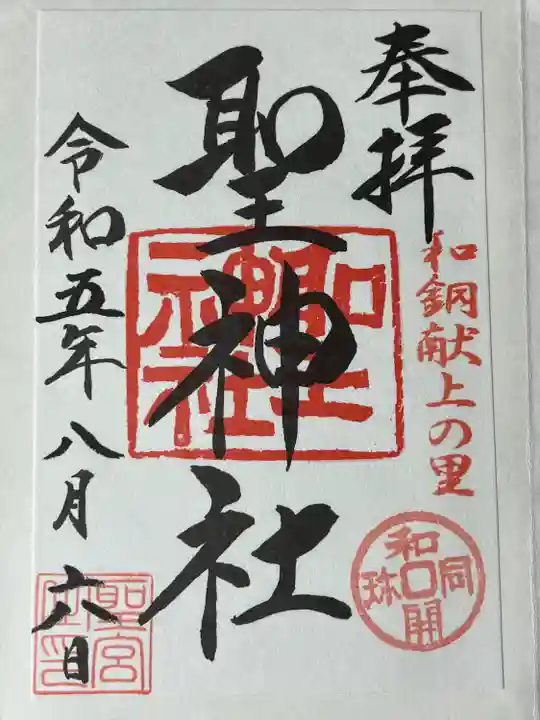 奉拝
和銅献上の里
和同開珎
聖神社
聖神社
令和五年八月六日
聖宮